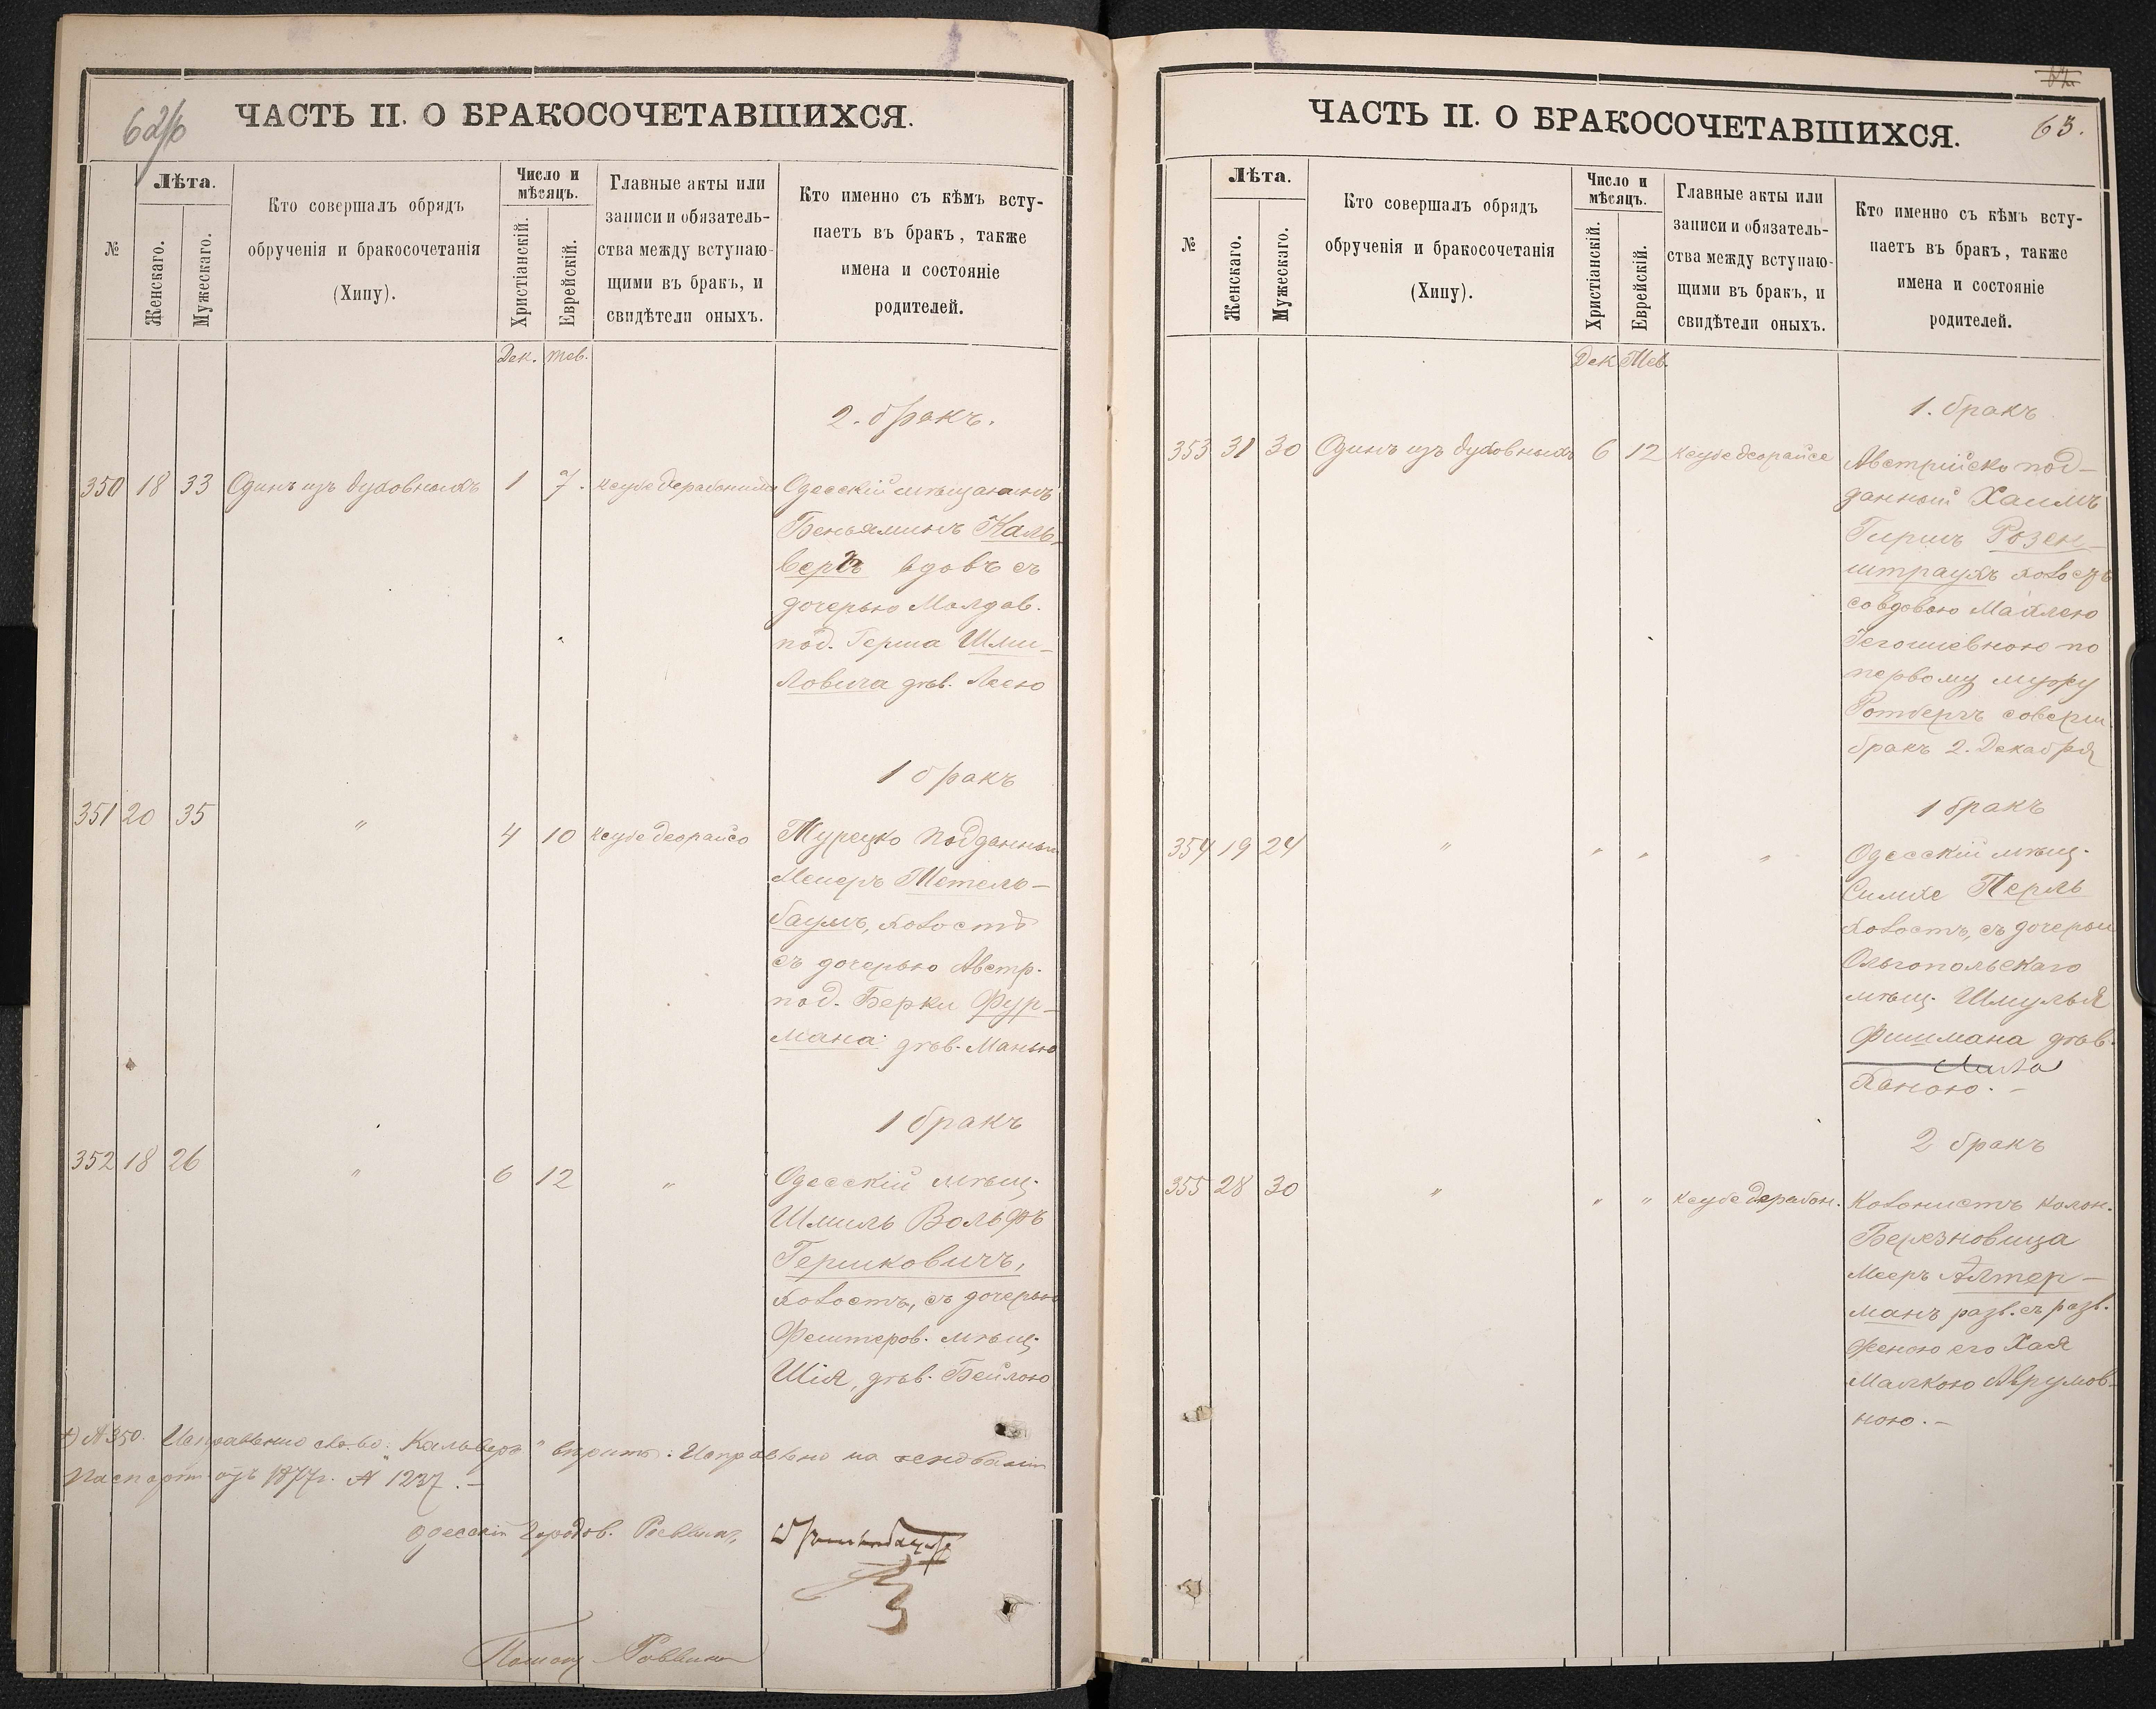 62/б
ЧАСТЬ II. О БРАКОСОЧЕТАВШИХСЯ.
№
Лѣта.
Женскаго.
Мужескаго.
Кто совершалъ обрядъ
обрученія и бракосочетанія
(Хипу).
Число и
мѣсяцъ.
Христіанскій.
Еврейскій.
Главные акты или
записи и обязатель-
ства между вступаю-
щими въ бракъ, и
свидѣтели оныхъ.
Кто именно съ кѣмъ всту-
паетъ въ бракъ, также
имена и состояніе
родителей.
Дек. Тев.
2. бракъ.
350 18 33 Одинъ изъ духовныхъ 1 7. Одесскій мѣщанинъ
Беньяминъ Каль-
вергъ вдовъ съ
дочерью Молдав.
под. Герша Шми-
ловича дѣв. Леею
1 бракъ
351 20 35 " 4 10 ксубе деорайсо Турецко подданный
Мейеръ Тетель-
баумъ, холостъ
съ дочерью Австр.
под. Берки Фур-
мана дѣв. Манею
1 бракъ
352 18 26 " 6 12 " Одесскій мѣщ.
Шмиль Вольфъ
Гершковичъ,
холостъ, съ дочерью
мѣщ.
Шія, дѣв. Бейлою
№ 350. Исправленно слово: "Кальверг" вѣрить: Исправлено на основаніи
Паспорта отъ 1877г. № 1237. -
Одесскій Городов. Раввинъ
Помощ Раввина
63.
ЧАСТЬ II. О БРАКОСОЧЕТАВШИХСЯ.
№
Лѣта.
Женскаго.
Мужескаго.
Кто совершалъ обрядъ
обрученія и бракосочетанія
(Хипу).
Число и
мѣсяцъ.
Христіанскій.
Еврейскій.
Главные акты или
записи и обязатель-
ства между вступаю-
щими въ бракъ, и
свидѣтели оныхъ.
Кто именно съ кѣмъ всту-
паетъ въ бракъ, также
имена и состояніе
родителей.
Дек Тев.
1. бракъ
353 31 30 Одинъ изъ духовныхъ 6 12 ксубе деорайсе Австрійско под-
данный Хаимъ
Гиршъ Розен-
штраухъ холостъ
со вдовою Махлею
по
первому мужу
Ротбергъ соверш.
бракъ 2. Декабря
1 бракъ
354 19 24 " " " " Одесскій мѣщ.
Симхе Перль
холостъ, съ дочерью
Ольгопольскаго
мѣщ. Шмулья
Фишмана дѣв.
Ханою. -
2 бракъ
355 28 30 " " " ксубе дерабон. Колонистъ колон.
Березновица
Мееръ Алтер-
манъ разв. съ разв.
женою его Хая
Малкою Аврумов-
ною. -